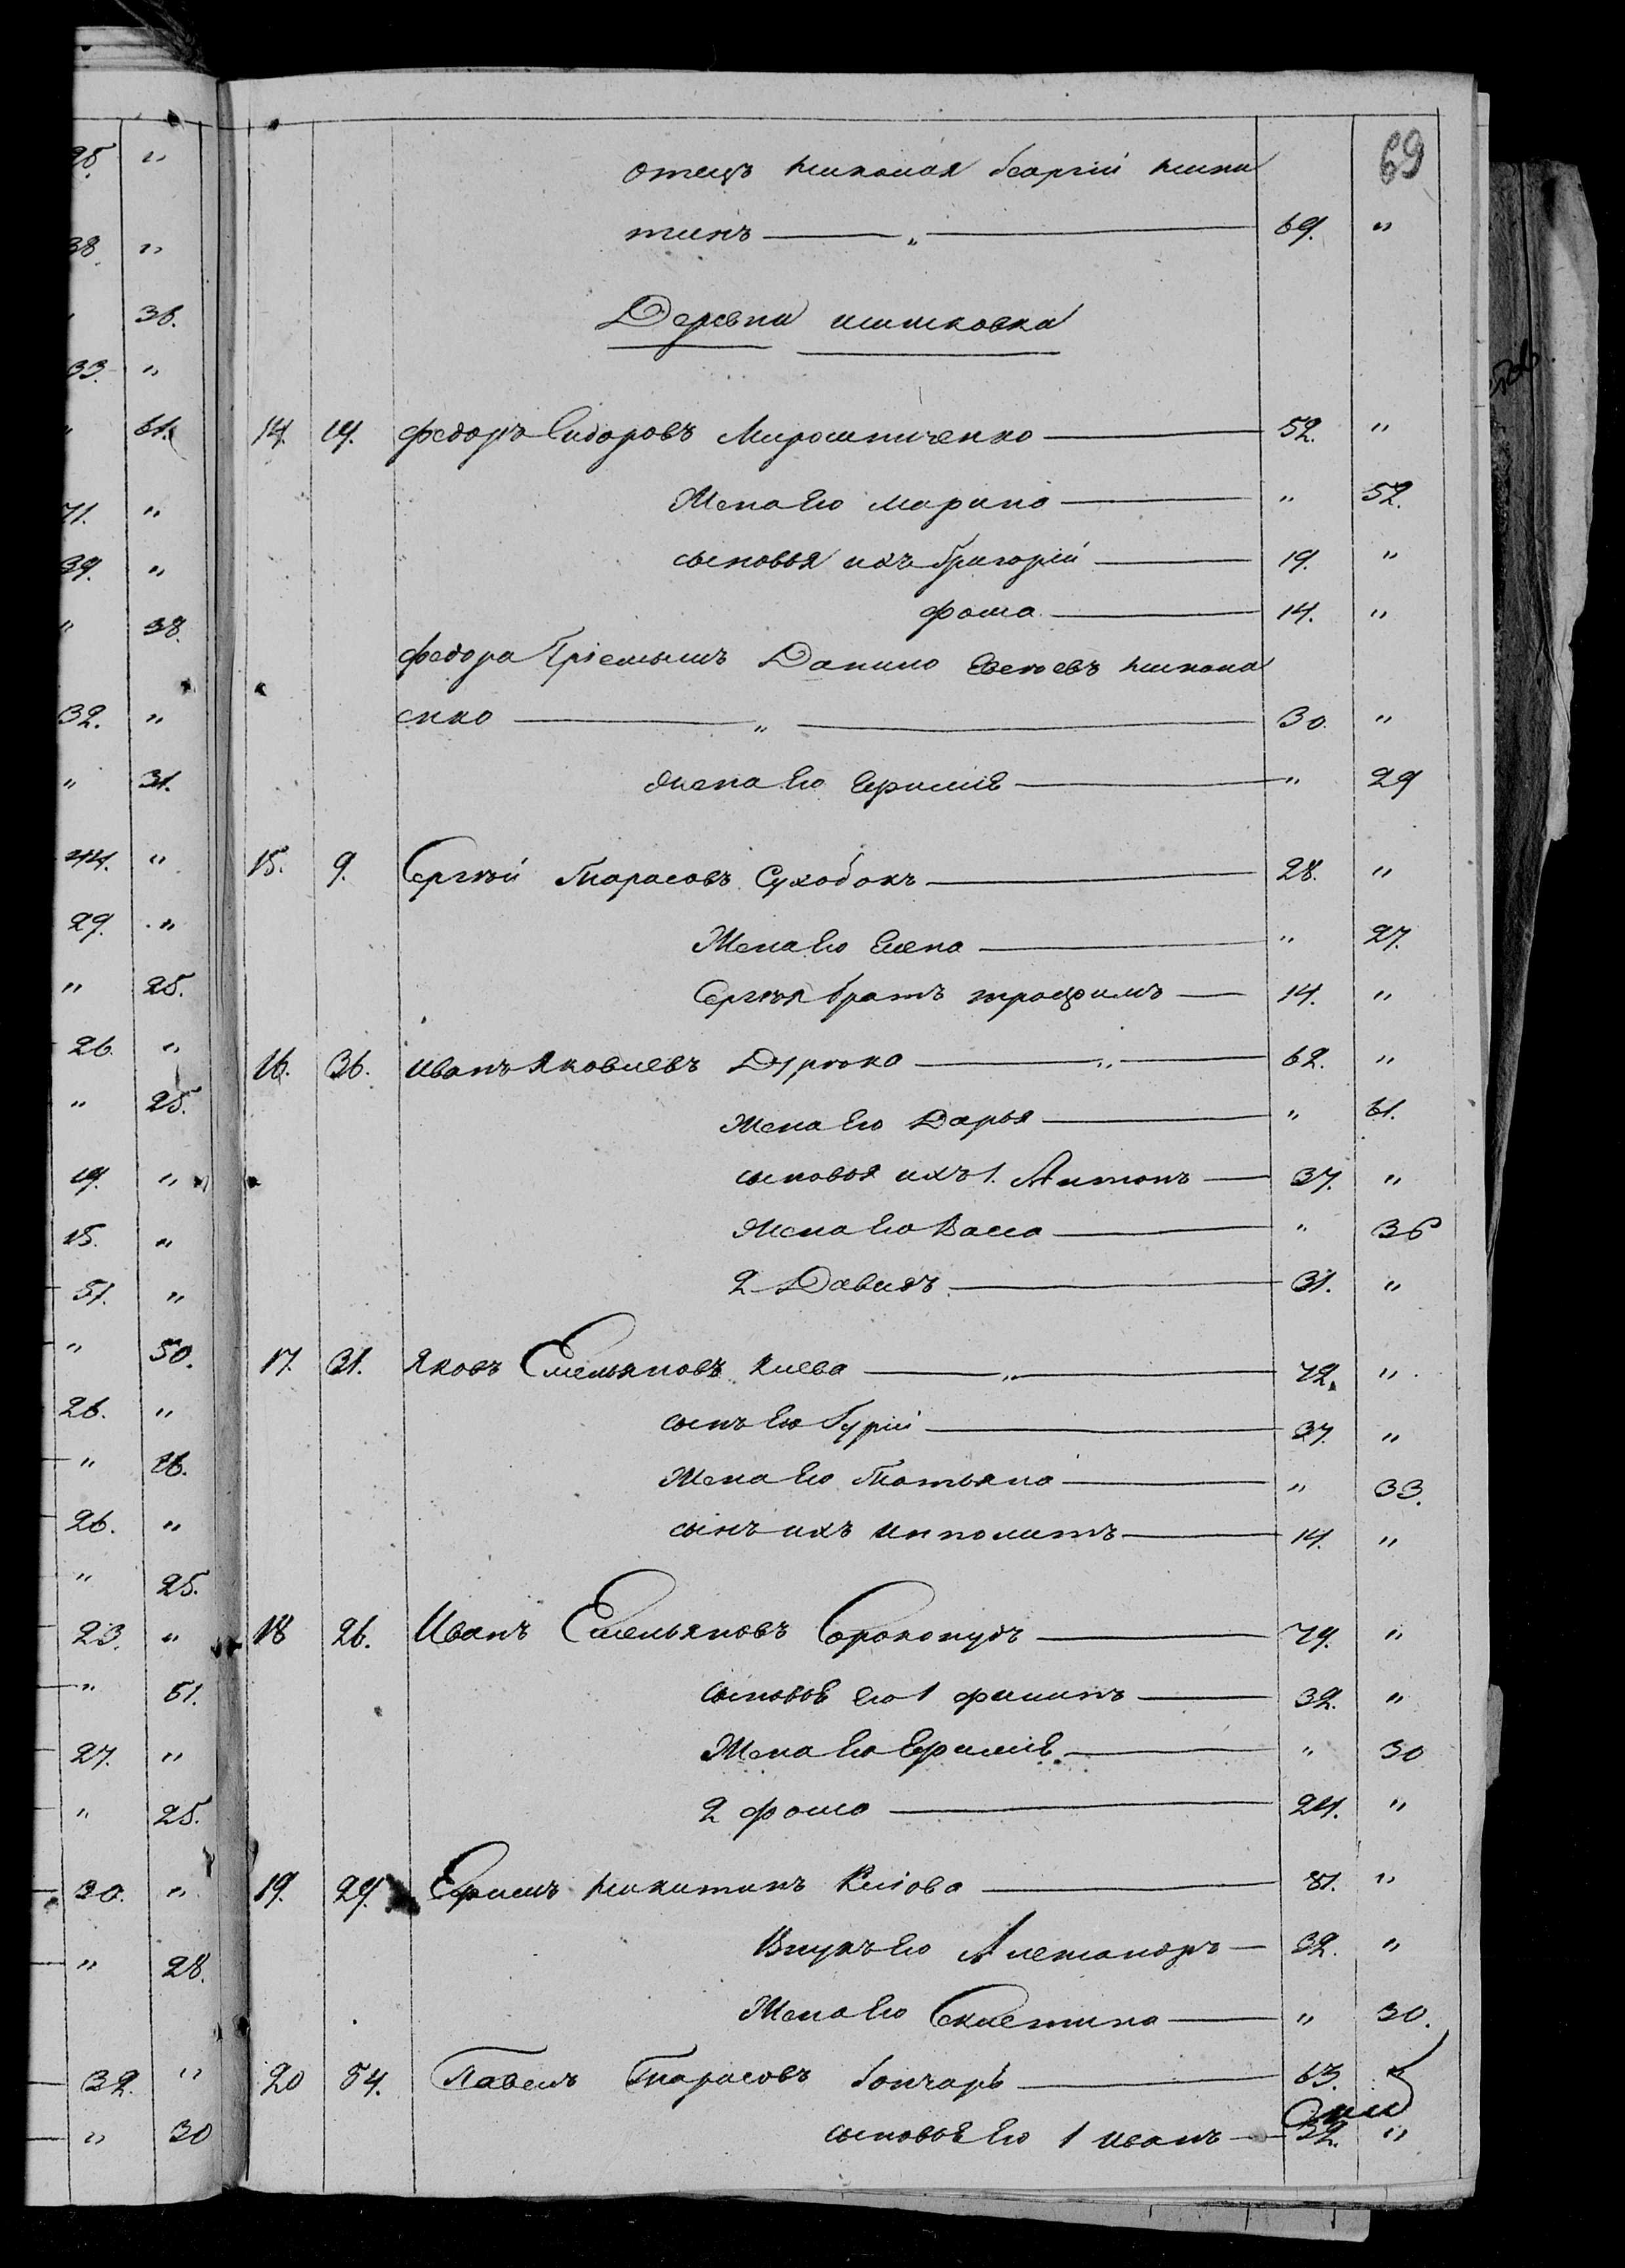 25. "
38. "
" 36.
33. "
" 61.
71. "
39. "
" 38.
32. "
" 31.
44. "
29. "
" 25.
26. "
" 25.
19. "
15. "
51. "
" 50.
26. "
" 26.
26. "
" 25.
23. "
" 51.
27. "
" 25.
30. "
" 28.
32. "
" 30
69
отецъ Николая Георгій Ники
тинъ — " — 69. "
Деревни
14. 19. Федоръ Сидоровъ Мирошниченко — 52. "
Жена Его Марина — " 52.
сыновья ихъ Григорій — 19. "
Фома — 14. "
Федора Пріемышъ Данило Никола
енко — " — 30. "
жена Его — " 29
15. 9. Сергѣй Тарасовъ Суховокъ — 28. "
Жена Его Елена — " 27.
Сергѣя братъ Трофимъ — 14. "
16. 36. Иванъ Яковлевъ — " — 62. "
Жена Его Дарья — " 61.
сыновья ихъ 1. Антонъ — 37. "
Жена Его Васса — " 36
2 Давидъ — 31. "
17. 31. Яковъ Емельяновъ Клева — " — 72. "
сынъ Его Гурій — 37. "
Жена Его Татьяна — " 33.
сынъ ихъ Ипполитъ — 14. "
18 26. Иванъ Емельяновъ Сорокопудъ — 79. "
сыновьѣ его 1 Филипъ — 32. "
Жена Его — " 30
2 Фома — 24. "
19. 29. Ефимъ Никитинъ — 81. "
Внукъ Его Александръ — 32. "
Жена Его — " 30.
20 54. Павелъ Тарасовъ Гончаръ — 63.
сыновьѣ Его 1 Иванъ — 32. "